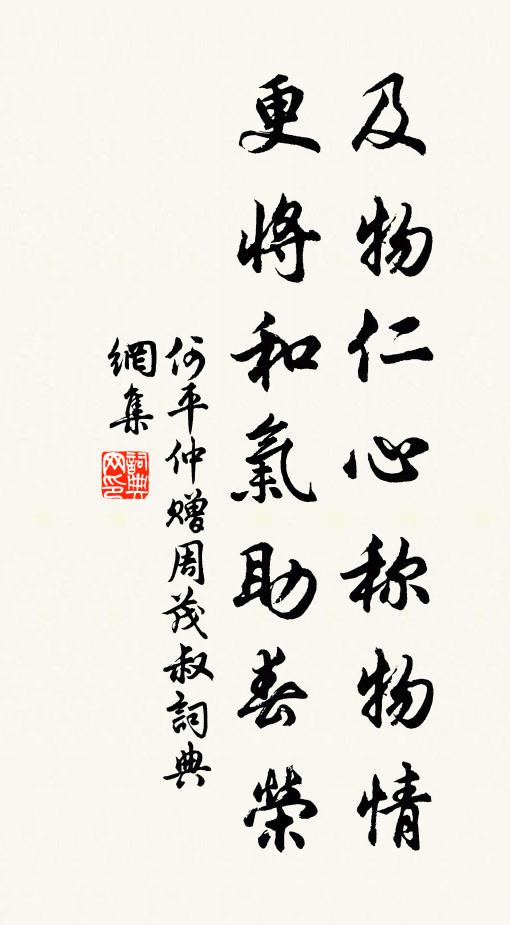 及物仁心称物情
更将和氣助春榮
何平仲赠周茂叔詞典
網集
詞典網印